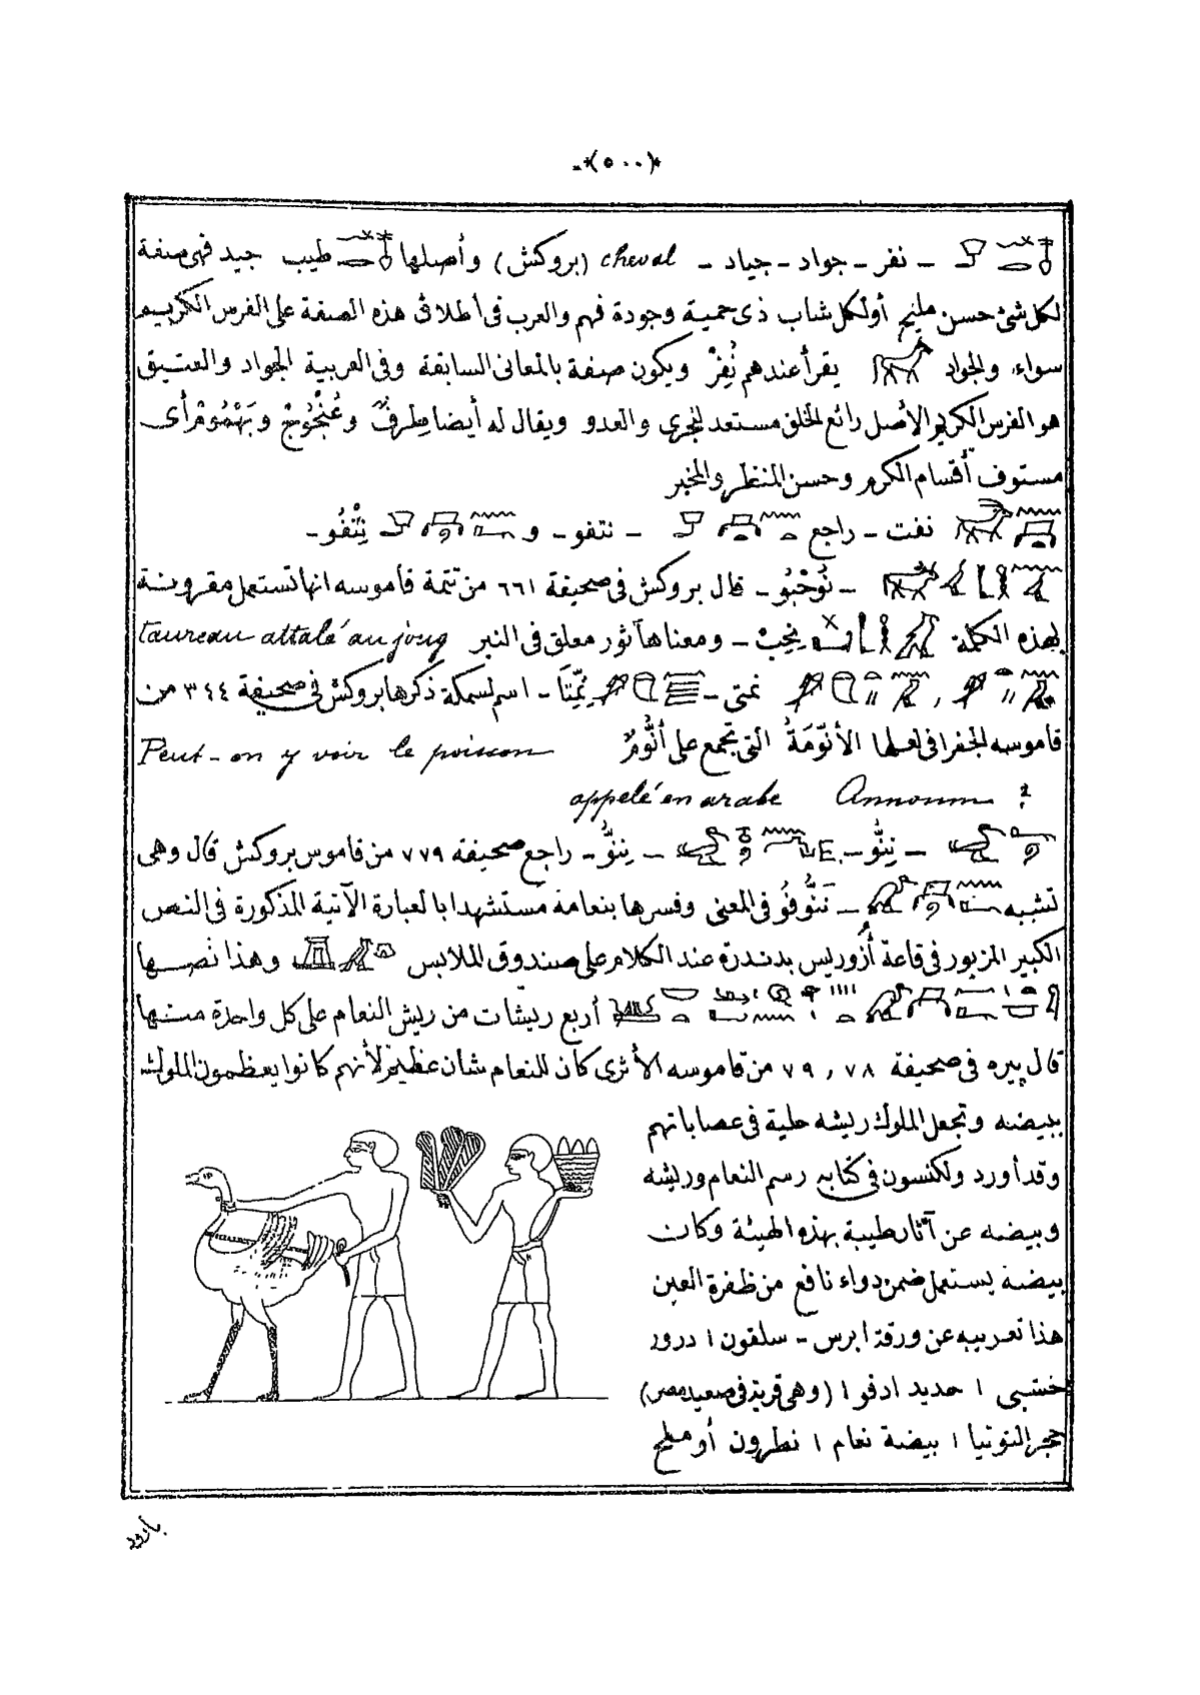 *(٥٠٠)*
ـ نفر ـ جواد ـ جياد ـ cheval (بروكش) وأصلها طيب جيد فهى صفة
لكل شئ حسن مليح أو لكل شاب ذى حمية وجودة فهم والعرب فى اطلاق هذه الصفة على الفرس الكريم
سواء، والجواد يقرأ عندهم نُفِرْ ويكون صفة بالمعانى السابقة وفى العربية الجواد والعتيق
هو الفرس الكريم الأصل رائع الخلق مستعد للجرى والعدو ويقال له أيضا طِرفٌ وعُنْجُوجٌ أى
مستوف أقسام الكرم وحسن المنظر والمخبر
نفت ـ راجع ـ نتفو ـ و نِتْفُو ـ
ـ نُوحْبُو ـ قال بروكش فى صحيفة ٦٦١ من تتمة قاموسه انها تستعمل مقرونة
بهذه الكلمة نِحِبْ ـ ومعناها ثور معلق فى النير taureau attalé au joug
نمتى ـ ـ اسم لسمكة ذكرها بروكش فى صحيفة ٣٤٤ من
قاموسه الجغرافى لعلها الأَنُّومَةُ التى تجمع على أَنُّومٌ Peut-on y voir le poisson
appelé en arabe Annoum ?
ـ نِنُّو ـ ـ نِنُّو ـ راجع صحيفة ٧٧٩ من قاموس بروكش قال وهى
تشبه ـ فى المعنى وفسرها بنعامة مستشهدا بالعبارة الآتية المذكورة فى النص
الكبير المزبور فى قاعة أزوريس بدندرة عند الكلام على صندوق الملابس وهذا نصها
أربع ريشات من ريش النعام على كل واحدة منها
قال پيره فى صحيفة ٧٨ , ٧٩ من قاموسه الأثرى كان للنعام شان عظيم لأنهم كانوا يعظمون الملوك
ببيضه وتجعل الملوك ريشه حلية فى عصاباتهم
وقد أورد ولكنسون فى كتابه رسم النعام وريشه
وبيضه عن آثار طيبة بهذه الهيئة وكان
بيضه يستعمل ضمن دواء نافع من ظفرة العين
هذا تعريبه عن ورقة ابرس ـ سلقون ١ درور
خشبى ١ حديد ادفو ١ (وهى قرية فى صعيد مصر)
حجر التوتيا ١ بيضة نعام ١ نطرون أو ملح